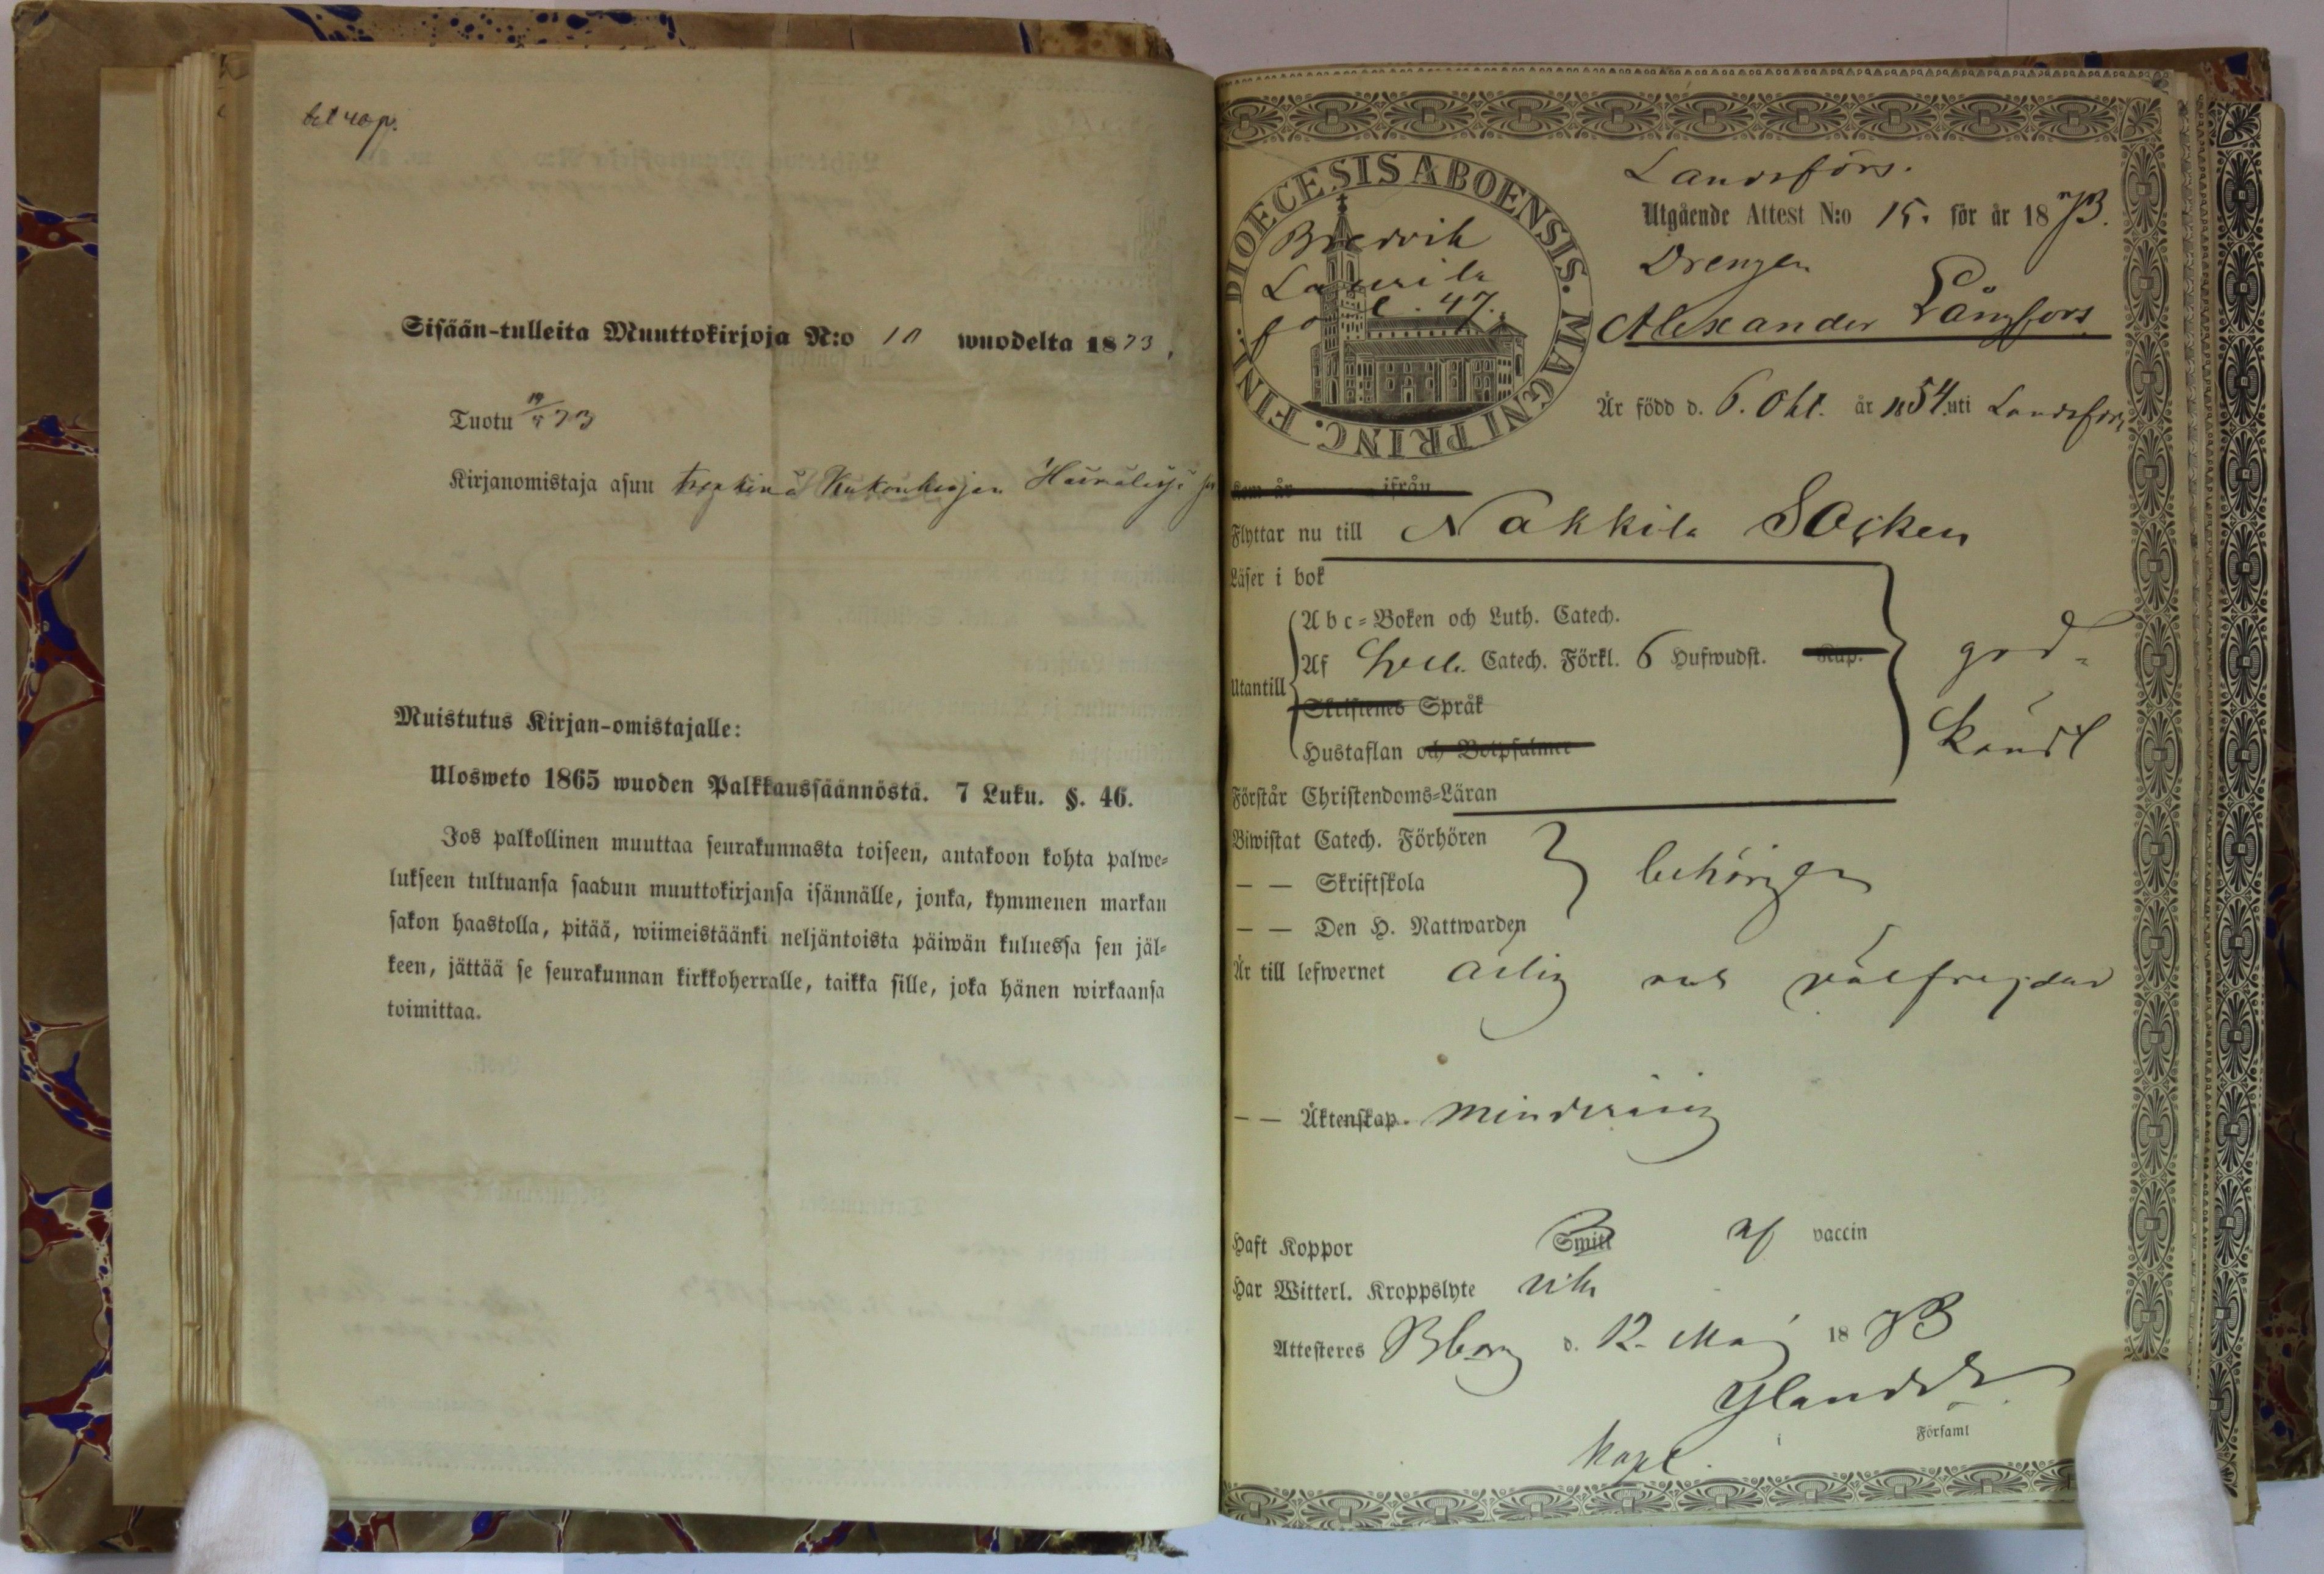 bet 40 p.
Sisään-tulleita Muuttokirjoja N:o 10 wuodelta 1873,
Tuotu 19/5 73
Kirjanomistaja asuu
Muistutus Kirjan-omistajalle:
Ulosweto 1865 wuoden Palkkaussäännöstä. 7 Luku. §. 46.
Jos palkollinen muuttaa seurakunnasta toiseen, antakoon kohta palwe-
lukseen tultuansa saadun muuttokirjansa isännälle, jonka, kymmenen markan
sakon haastolla, pitää, wiimeistäänki neljäntoista päiwän kuluessa sen jäl-
keen, jättää se seurakunnan kirkkoherralle, taikka sille, joka hänen wirkaansa
toimittaa.
DIOECESIS ABOENSIS. MAGNI PRINC. FINL.
Bredvik
Laurila
fol. 47.
Landsförs.
Utgående Attest N:o 15. för år 1873.
Drengen
Alexander Långfors
Är född d. 6. Okt. år 1854. uti Landsförs.
Kom år ifrån
Flyttar nu till Nakkila Socken
Läser i bok
Utantill
Abc-Boken och Luth. Catech.
Af Catech. Förkl. 6 Hufwudst. Kap.
Skriftenes Språk
Hustaflan och Botpsalmer
god-
kändt
Förstår Christendoms-Läran
Biwistat Catech. Förhören
— — Skriftskola
— — Den H. Nattwarden
behörigen
Är till lefwernet ärlig och välfrejdad
— — Äktenskap. minderårig
Haft Koppor Smitt af vaccin
Har Witterl. Kroppslyte
Attesteres Bborg d. 12. Maj 1873
Ylander
Kapl. i Församl